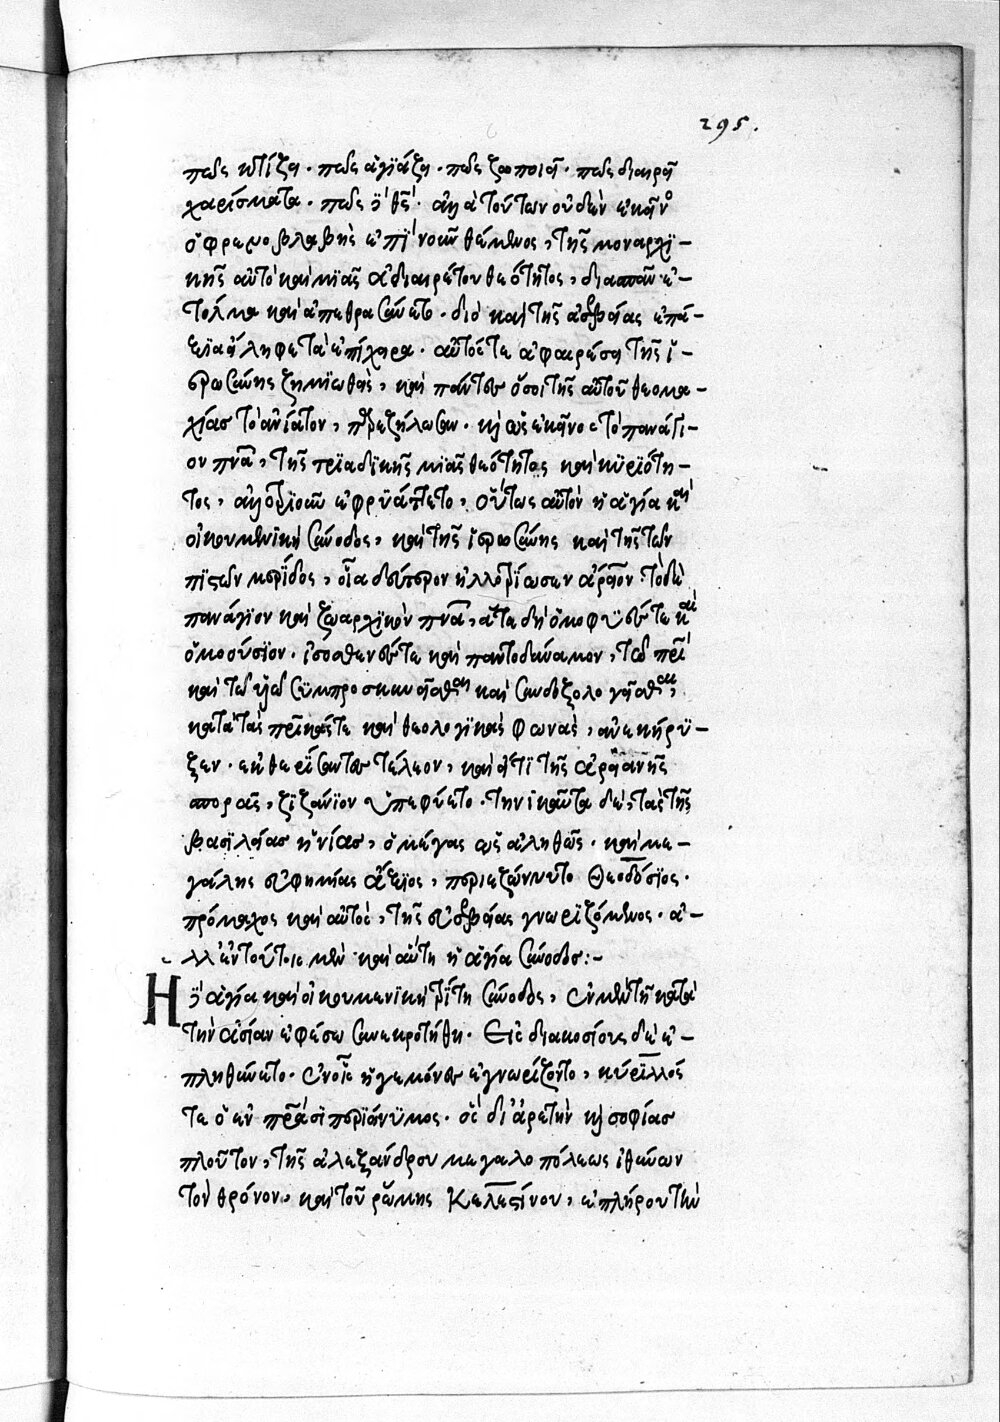 295.
πῶς κτίζει· πῶς ἁγιάζει· πῶς ζωποιεῖ· πῶς διαιρεῖ
χαρίσματα· πῶς ὁ θεός· ἀλλὰ τούτων οὐδὲν ἐκεῖνο
ὁ φρενοβλαβὴς ἐπὶ νοῦν θέμενος, τῆς μοναρχι-
κῆς αὐτὸ καὶ μιᾶς ἀδιαιρέτου θεότητος, διασπᾶν ἐ-
τόλμα καὶ ἀπεθρασύνετο· διὸ καὶ τῆς ἀσεβείας ἐπά-
ξια εἴληφε τὰ ἐπίχειρα· αὐτός τε ἀφαιρέσει τῆς ἱ-
ερωσύνης ζημιωθεὶς, καὶ πάντες ὅσοι τῆς αὐτοῦ θεομα-
χίας τὸ ἀνίατον, παρεζήλωσαν· καὶ ὡς ἐκεῖνος τὸ πανάγι-
ον πνεῦμα, τῆς τριαδικῆς μιᾶς θεότητος καὶ κυριότη-
τος, ἀλλοτριοῦν ἐφρυάττετο· οὕτως αὐτὸν ἡ ἁγία καὶ
οἰκουμενικὴ σύνοδος, καὶ τῆς ἱερωσύνης καὶ τῆς τῶν
πιστῶν μερίδος, οἷα δεύτερον ἠλλοτρίωσεν ἄρειον· τὸ δὲ
πανάγιον καὶ ζωαρχικὸν πνεῦμα, ἅτε δὴ ὁμοφυές τε καὶ
ὁμοούσιον· ἰσοσθενές τε καὶ παντοδύναμον, τῷ πατρὶ
καὶ τῷ υἱῷ συμπροσκυνεῖσθαι καὶ συνδοξολογεῖσθαι,
κατὰ τὰς πατρικάς τε καὶ θεολογικὰς φωνὰς, ἀνεκήρυ-
ξεν· ἐκθερίσαντες τέλεον, καὶ εἴ τι τῆς ἀρειανῆς
σπορᾶς, ζιζάνιον ὑπεφύετο· τηνικαῦτα δὲ, τὰς τῆς
βασιλείας ἡνίας, ὁ μέγας ὡς ἀληθῶς· καὶ με-
γάλης εὐφημίας ἄξιος, περιεζώννυτο Θεοδόσιος·
πρόμαχος καὶ αὐτὸς, τῆς εὐσεβείας γνωριζόμενος· ἀ-
λλ' ἐν τούτοις μὲν καὶ αὕτη ἡ ἁγία σύνοδος:-
Ἡ δὲ ἁγία καὶ οἰκουμενικὴ τρίτη σύνοδος, ἐν μὲν τῇ κατὰ
τὴν ἀσίαν ἐφέσῳ συνεκροτήθη· Εἰς διακοσίους δὲ ἐ-
πληθύνετο· ἐν οἷς ἡγεμόνες ἐγνωρίζοντο, κύριλλός
τε ὁ ἐν πᾶσι περιώνυμος· ὃς δι' ἀρετὴν καὶ σοφίας
πλοῦτον, τῆς ἀλεξάνδρου μεγαλοπόλεως ἰθύνων
τὸν θρόνον, καὶ τοῦ ῥώμης Κελεστίνου, ἐπλήρου τὴν